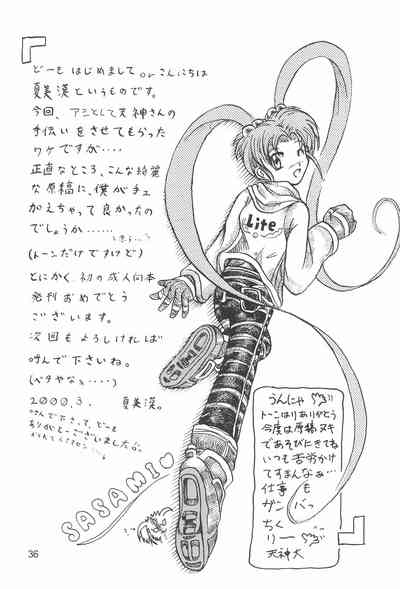 どーも はじめまして or こんにちは
夏美漠というものです。
今回、アシとして天神さんの
手伝いをさせてもらった
ワケですが‥‥
正直なところ、こんな綺麗
な原稿に、僕がチェ
かえちゃって良かったの
でしょうか‥‥‥
(トーンだけですけど)
とにかく、初の成人向本
発刊おめでとう
ございます。
次回もよろしければ
呼んで下さいね。
(ベタやなぁ‥‥)
2000,3. 夏美漠。
呼んで下さって、どーも
ありがとーございました。
Lite
SASAMI♡
うんにゃ
トーンはりありがとう
今度は原稿ヌキ
であそびにきてね
いつも苦労かけ
てすまんなぁ…
仕事も
ガンバっ
ちく
りー
天神大
36